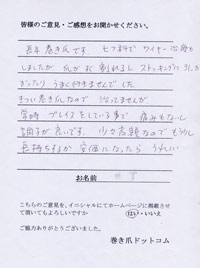 皆様のご意見・ご感想をお聞かせください。
長年巻き爪です。 ワイヤー治療も
しましたが 爪が ストッキングに
うまく行きませんでした
きつい巻き爪なので 治ってませんが
常時 ブレイスをしている事で 痛みもなし
調子が良いです。 少々高額なので もう少し
長持ちするか 安価になったら うれしい
お名前
こちらのご意見を、イニシャルにてホームページに掲載させ
て頂いてもよろしいですか はい・いいえ
ご協力ありがとうございました。
巻き爪ドットコム